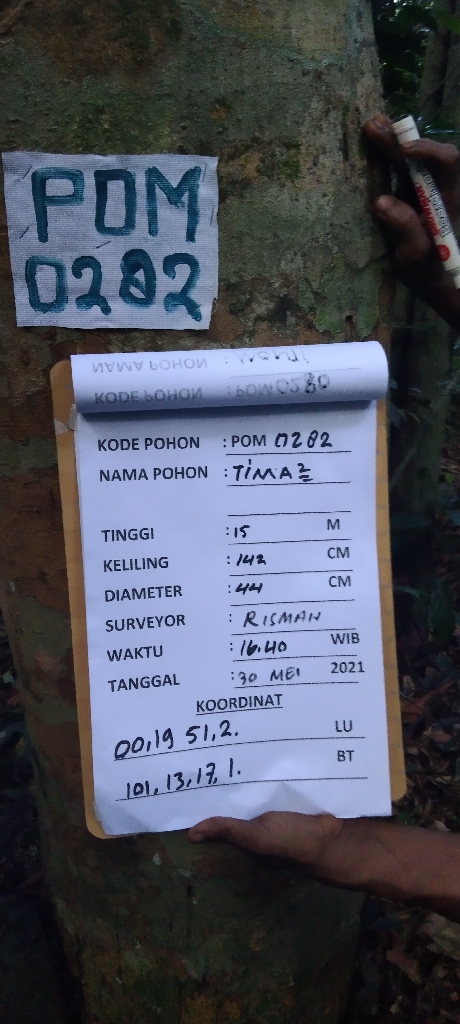 POM
0282
NAMA POHON :
KODE POHON : POM 0280
KODE POHON : POM 0282
NAMA POHON : TIMAZ
TINGGI : 15 M
KELILING : 142 CM
DIAMETER : 44 CM
SURVEYOR : RISMAN
WAKTU : 16.40 WIB
TANGGAL : 30 MEI 2021
KOORDINAT
00,19 51,2. LU
101,13,17,1. BT